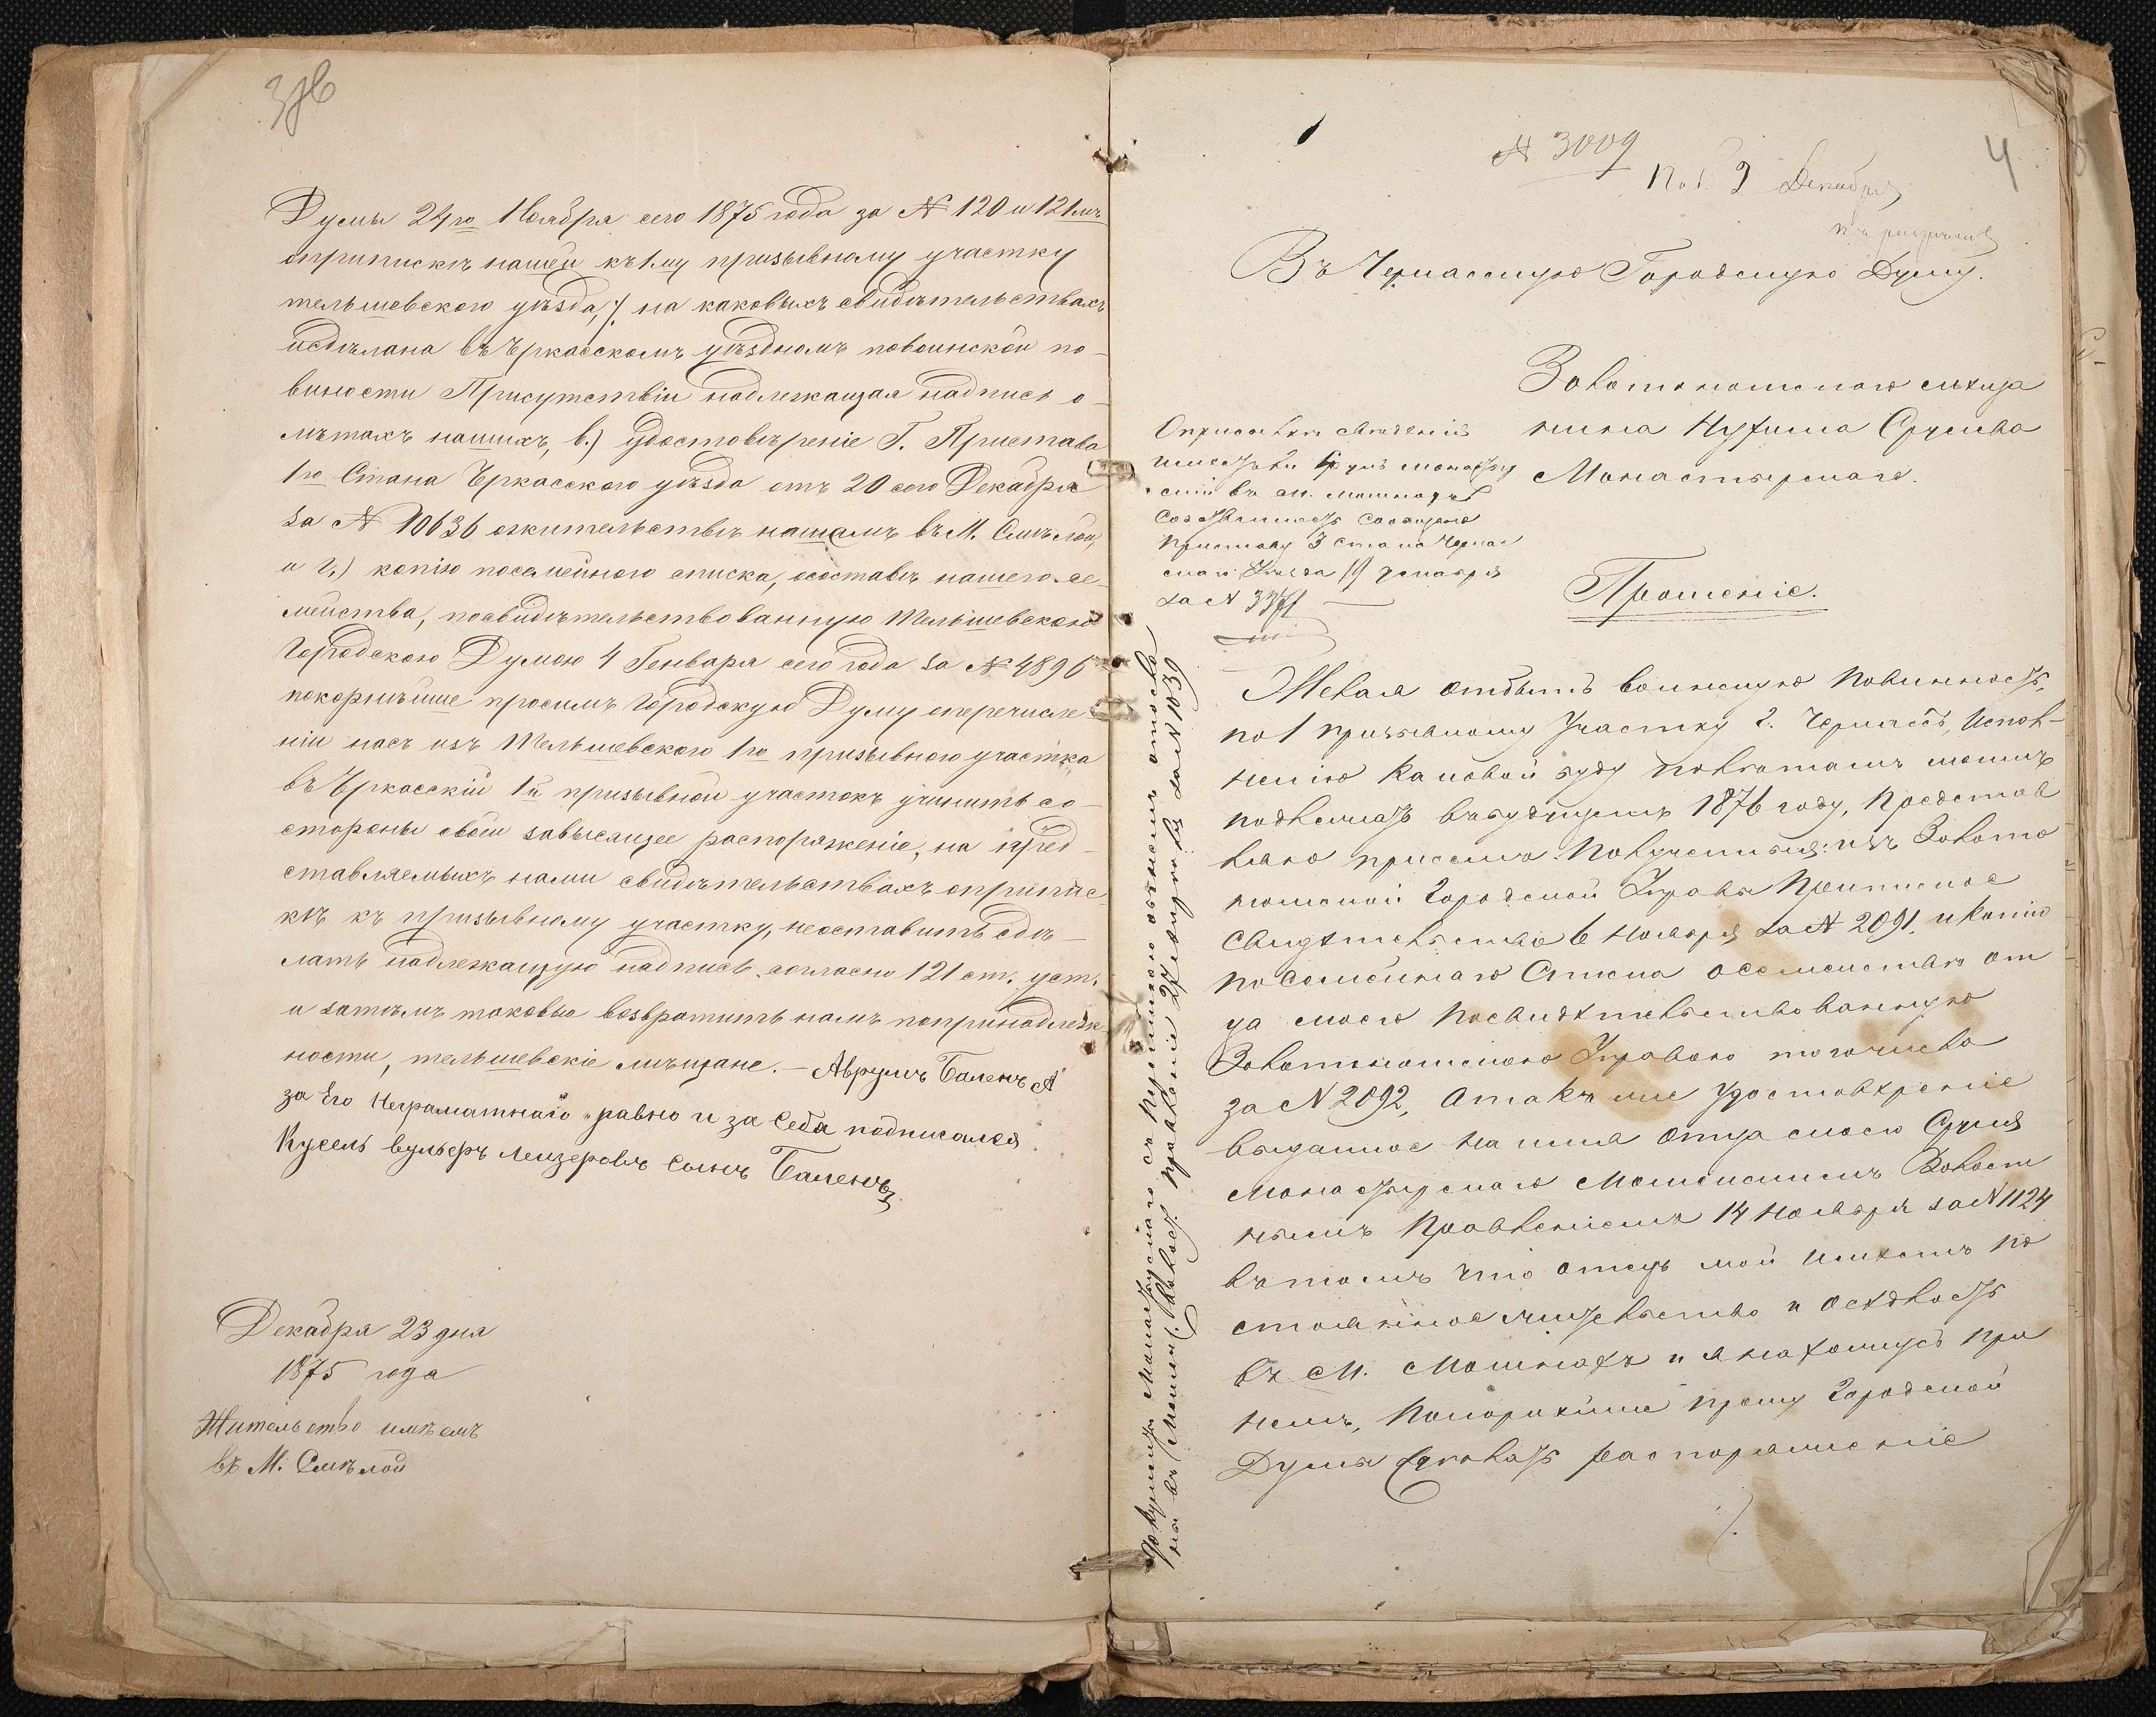 3об
Думы 24го Ноября сего 1875 года за № 120 и 121мъ
оприпискѣ нашей къ 1му призывному участку
тельшевскаго уѣзда, на каковыхъ свидѣтельствахъ
исдѣлана въ Черкасскомъ уѣздномъ повоинской по-
виности Присутствіи надлежащая надпись о-
лѣтахъ нашихъ, в.) удостовѣреніе Г. Пристава
1го Стана Черкасскаго уѣзда отъ 20 сего Декабря
за № 10636 ожительствѣ нашемъ въ М. Смѣлой,
и г.) копію посемейного списка, осоставѣ нашего се-
мейства, посвидѣтельствованную Тельшевскою
Городскою Думою 4 Генваря сего года за № 4896
покорнѣйше просимъ Городскую Думу оперечисле-
ніи насъ изъ Тельшевского 1го призывного участка
въ Черкасскій 1й призывной участокъ учинить со-
стороны своей зависящее распоряженіе, на пред-
ставляемыхъ нами свидѣтельствахъ оприпис-
кѣ къ призывному участку, неоставить сдѣ-
лать надлежащую надпись согласно 121 ст. уст.
и затѣмъ таковые возвратить намъ попринадлеж-
ности, тельшевскіе мѣщане. - Аврумъ Баленъ А
за Его Неграматнаго равно и за Себя подписался
Кусель вульфъ Лейзеровъ Сынъ Баленъ
Декабря 23 дня
1875 года
Жительство имѣемъ
въ М. Смѣлой
4
№ 3009
Пол. 9 Декабря
Въ Черкасскую Городскую Думу.
Золотоношскаго мѣща
нина Нухима Сруева
Монастырскаго.
въ м. Мошнахъ
Приставу 3 стана Черкас
скаго Уѣзда 19 декабря
за №
Прошеніе.
Желая отбыть воинскую повинность,
по 1 призывному Участку г. Черкассъ, Испол-
ненію каковой буду по лѣтамъ моимъ
подлежать въ будущемъ 1876 году, Представ
ляю присемъ: Полученныя: изъ Золото
ношской Городской Управы Приписное
Свидѣтельство 6 Ноября за № 2091, и копію
посемейнаго Списка осемействѣ от
ца моего посвидѣтельствованную
Золотоношскою Управою того числа
за № 2092, а также Удостовѣреніе
выданное на имя отца моего Сруля
Монастырскаго Мошенскимъ Волост
нымъ Правленіемъ 14 Ноября за № 1124
въ томъ что отецъ мой имѣетъ по
стоянное жительство и осѣдлость
въ М. Мошнахъ и я нахожусь при
немъ, Покорнѣйше прошу Городской
Думы Сдѣлать распоряженіе